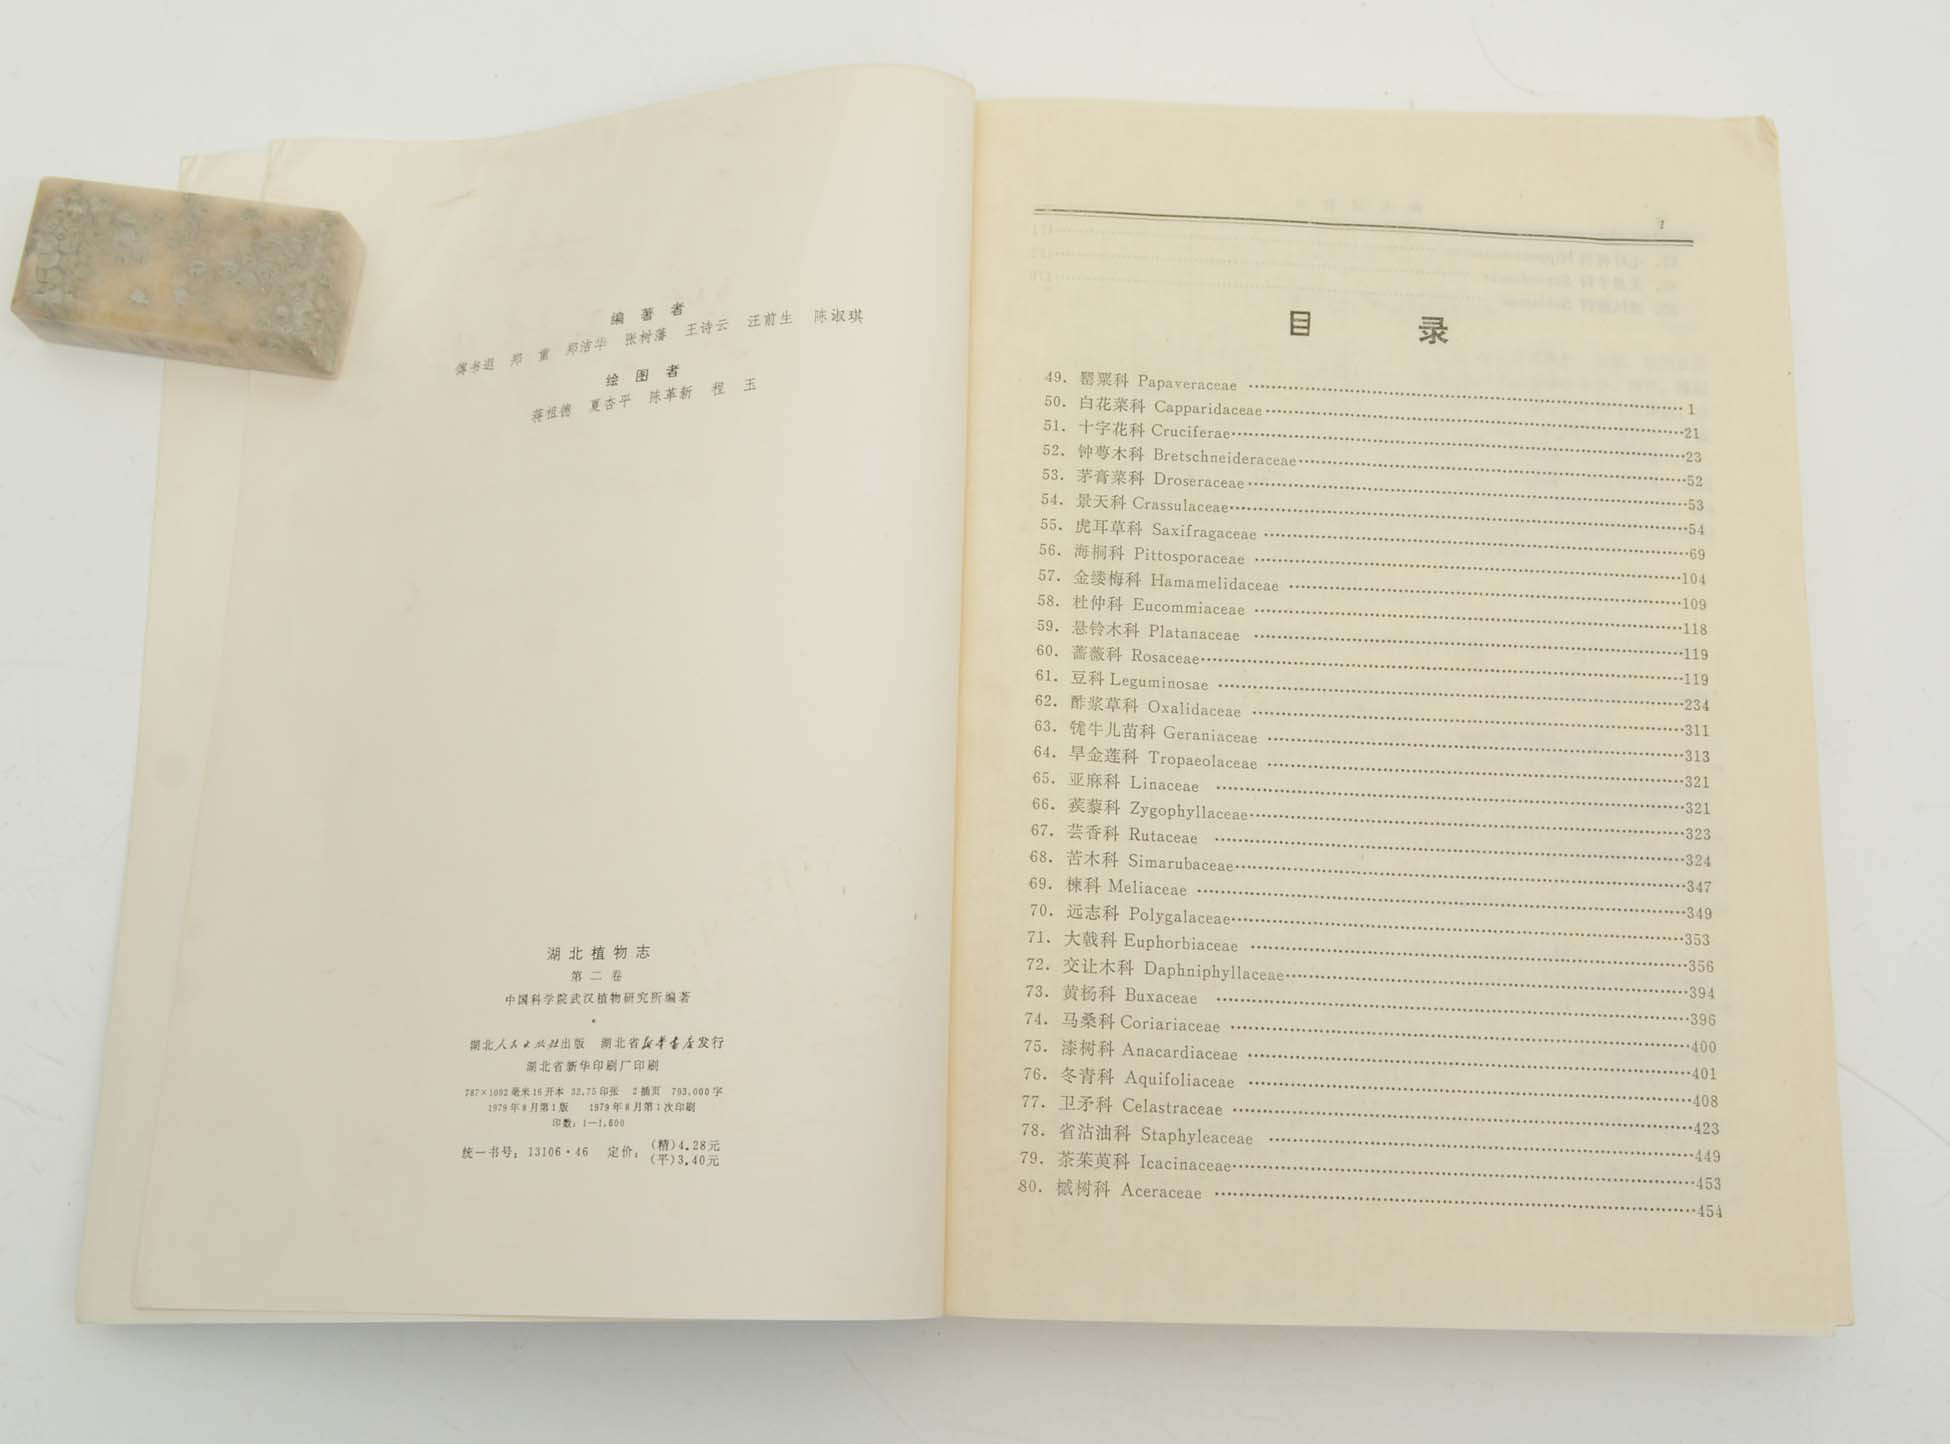 编 著 者
傅书遐 郑 重 郑洁华 张树藩 王诗云 汪前生 陈淑琪
绘 图 者
蒋祖德 夏杏平 陈革新 程 玉
湖北植物志
第二卷
中国科学院武汉植物研究所编著
湖北人民出版社出版 湖北省新华书店发行
湖北省新华印刷厂印刷
787×1092毫米16开本 32.75印张 2插页 793,000字
1979年8月第1版 1979年8月第1次印刷
印数：1—1,600
统一书号：13106·46 定价：(精)4.28元
(平)3.40元
1
目 录
49. 罂粟科 Papaveraceae ……1
50. 白花菜科 Capparidaceae ……21
51. 十字花科 Cruciferae ……23
52. 钟萼木科 Bretschneideraceae ……52
53. 茅膏菜科 Droseraceae ……53
54. 景天科 Crassulaceae ……54
55. 虎耳草科 Saxifragaceae ……69
56. 海桐科 Pittosporaceae ……104
57. 金缕梅科 Hamamelidaceae ……109
58. 杜仲科 Eucommiaceae ……118
59. 悬铃木科 Platanaceae ……119
60. 蔷薇科 Rosaceae ……119
61. 豆科 Leguminosae ……234
62. 酢浆草科 Oxalidaceae ……311
63. 牻牛儿苗科 Geraniaceae ……313
64. 旱金莲科 Tropaeolaceae ……321
65. 亚麻科 Linaceae ……321
66. 蒺藜科 Zygophyllaceae ……323
67. 芸香科 Rutaceae ……324
68. 苦木科 Simarubaceae ……347
69. 楝科 Meliaceae ……349
70. 远志科 Polygalaceae ……353
71. 大戟科 Euphorbiaceae ……356
72. 交让木科 Daphniphyllaceae ……394
73. 黄杨科 Buxaceae ……396
74. 马桑科 Coriariaceae ……400
75. 漆树科 Anacardiaceae ……401
76. 冬青科 Aquifoliaceae ……408
77. 卫矛科 Celastraceae ……423
78. 省沽油科 Staphyleaceae ……449
79. 茶茱萸科 Icacinaceae ……453
80. 槭树科 Aceraceae ……454